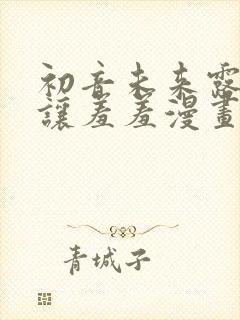 初音未来露
讓羞羞漫畫
青城子